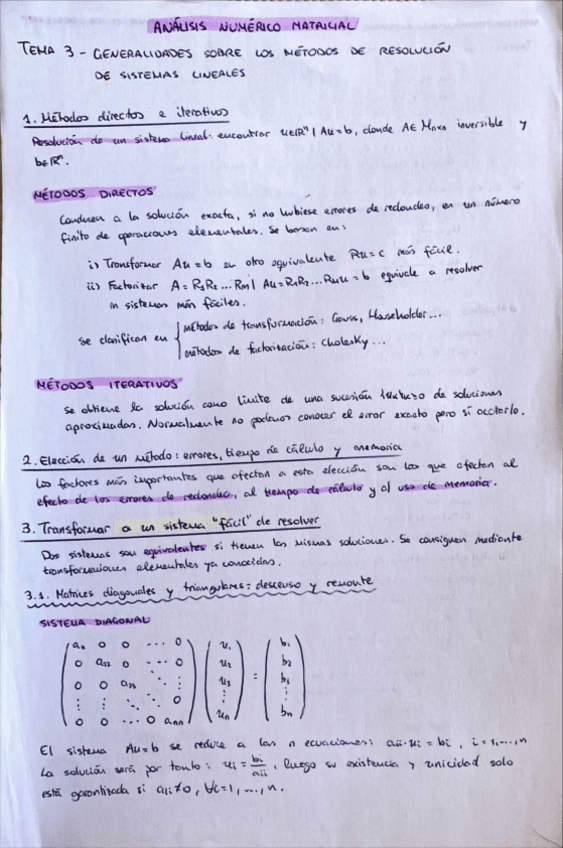 ANÁLISIS NUMÉRICO MATRICIAL
TEMA 3 - GENERALIDADES SOBRE LOS MÉTODOS DE RESOLUCIÓN
DE SISTEMAS LINEALES
1. Métodos directos e iterativos
Resolución de un sistema lineal: encontrar u∈ℝⁿ | Au=b, donde A∈ Mnxn inversible y
b∈ℝⁿ.
MÉTODOS DIRECTOS
Conducen a la solución exacta, si no hubiese errores de redondeo, en un número
finito de operaciones elementales. Se basan en:
i) Transformar Au=b en otro equivalente Ru=c más fácil.
ii) Factorizar A = R₁R₂...Rm | Au=R₁R₂...Rmu = b equivale a resolver
m sistemas más fáciles.
Se clasifican en { métodos de transformación: Gauss, Householder...
métodos de factorización: Cholesky ...
MÉTODOS ITERATIVOS
Se obtiene la solución como límite de una sucesión de soluciones
aproximadas. Normalmente no podemos conocer el error exacto pero sí acotarlo.
2. Elección de un método: errores, tiempo de cálculo y memoria
Los factores más importantes que afectan a esta elección son los que afectan al
efecto de los errores de redondeo, al tiempo de cálculo y al uso de memoria.
3. Transformar a un sistema "fácil" de resolver
Dos sistemas son equivalentes si tienen las mismas soluciones. Se consiguen mediante
transformaciones elementales ya conocidas.
3.1. Matrices diagonales y triangulares: descenso y remonte
SISTEMA DIAGONAL
a₁₁ 0 0 ... 0 u₁ b₁
0 a₂₂ 0 ... 0 u₂ b₂
0 0 a₃₃ ⋱ ⋮ u₃ = b₃
⋮ ⋮ ⋱ ⋱ 0 ⋮ ⋮
0 0 ... 0 ann un bn
El sistema Au=b se reduce a las n ecuaciones: aii·ui = bi, i=1,...,n
La solución será por tanto: ui = bi/aii, luego su existencia y unicidad solo
está garantizada si aii≠0, ∀i=1,...,n.